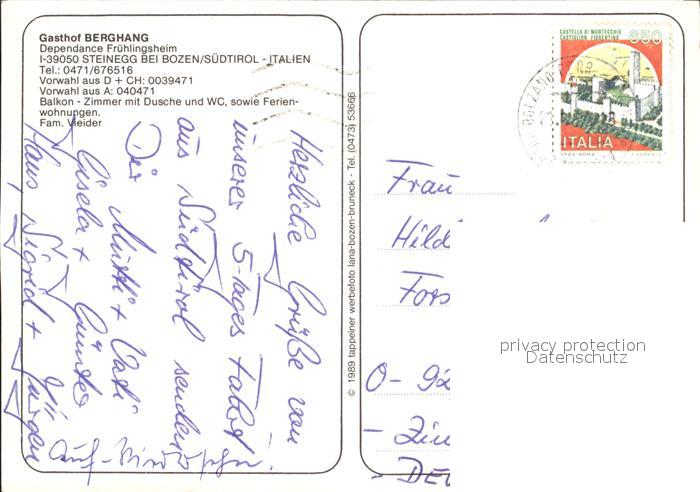 Gasthof BERGHANG
Dependance Frühlingsheim
I-39050 STEINEGG BEI BOZEN/SÜDTIROL - ITALIEN
Tel.: 0471/676516
Vorwahl aus D + CH: 0039471
Vorwahl aus A: 040471
Balkon - Zimmer mit Dusche und WC, sowie Ferien-
wohnungen.
Fam. Vieider
Herzliche Grüße von
unserer 5-Tages Fahrt
aus Südtirol senden
Dir Mutti + Vati
Gisela + Günter
Hans, Sigrid + Jürgen
Auf-Wiedersehn!
© 1989 tappeiner werbefoto lana-bozen-bruneck - Tel. (0473) 53666
CASTELLO DI MONTECCHIO
CASTIGLION FIORENTINO
650
ITALIA
I.P.Z.S. ROMA
BOLZANO
Frau
Hild
Fors
O- 92
- Zin
- DE
privacy protection
Datenschutz